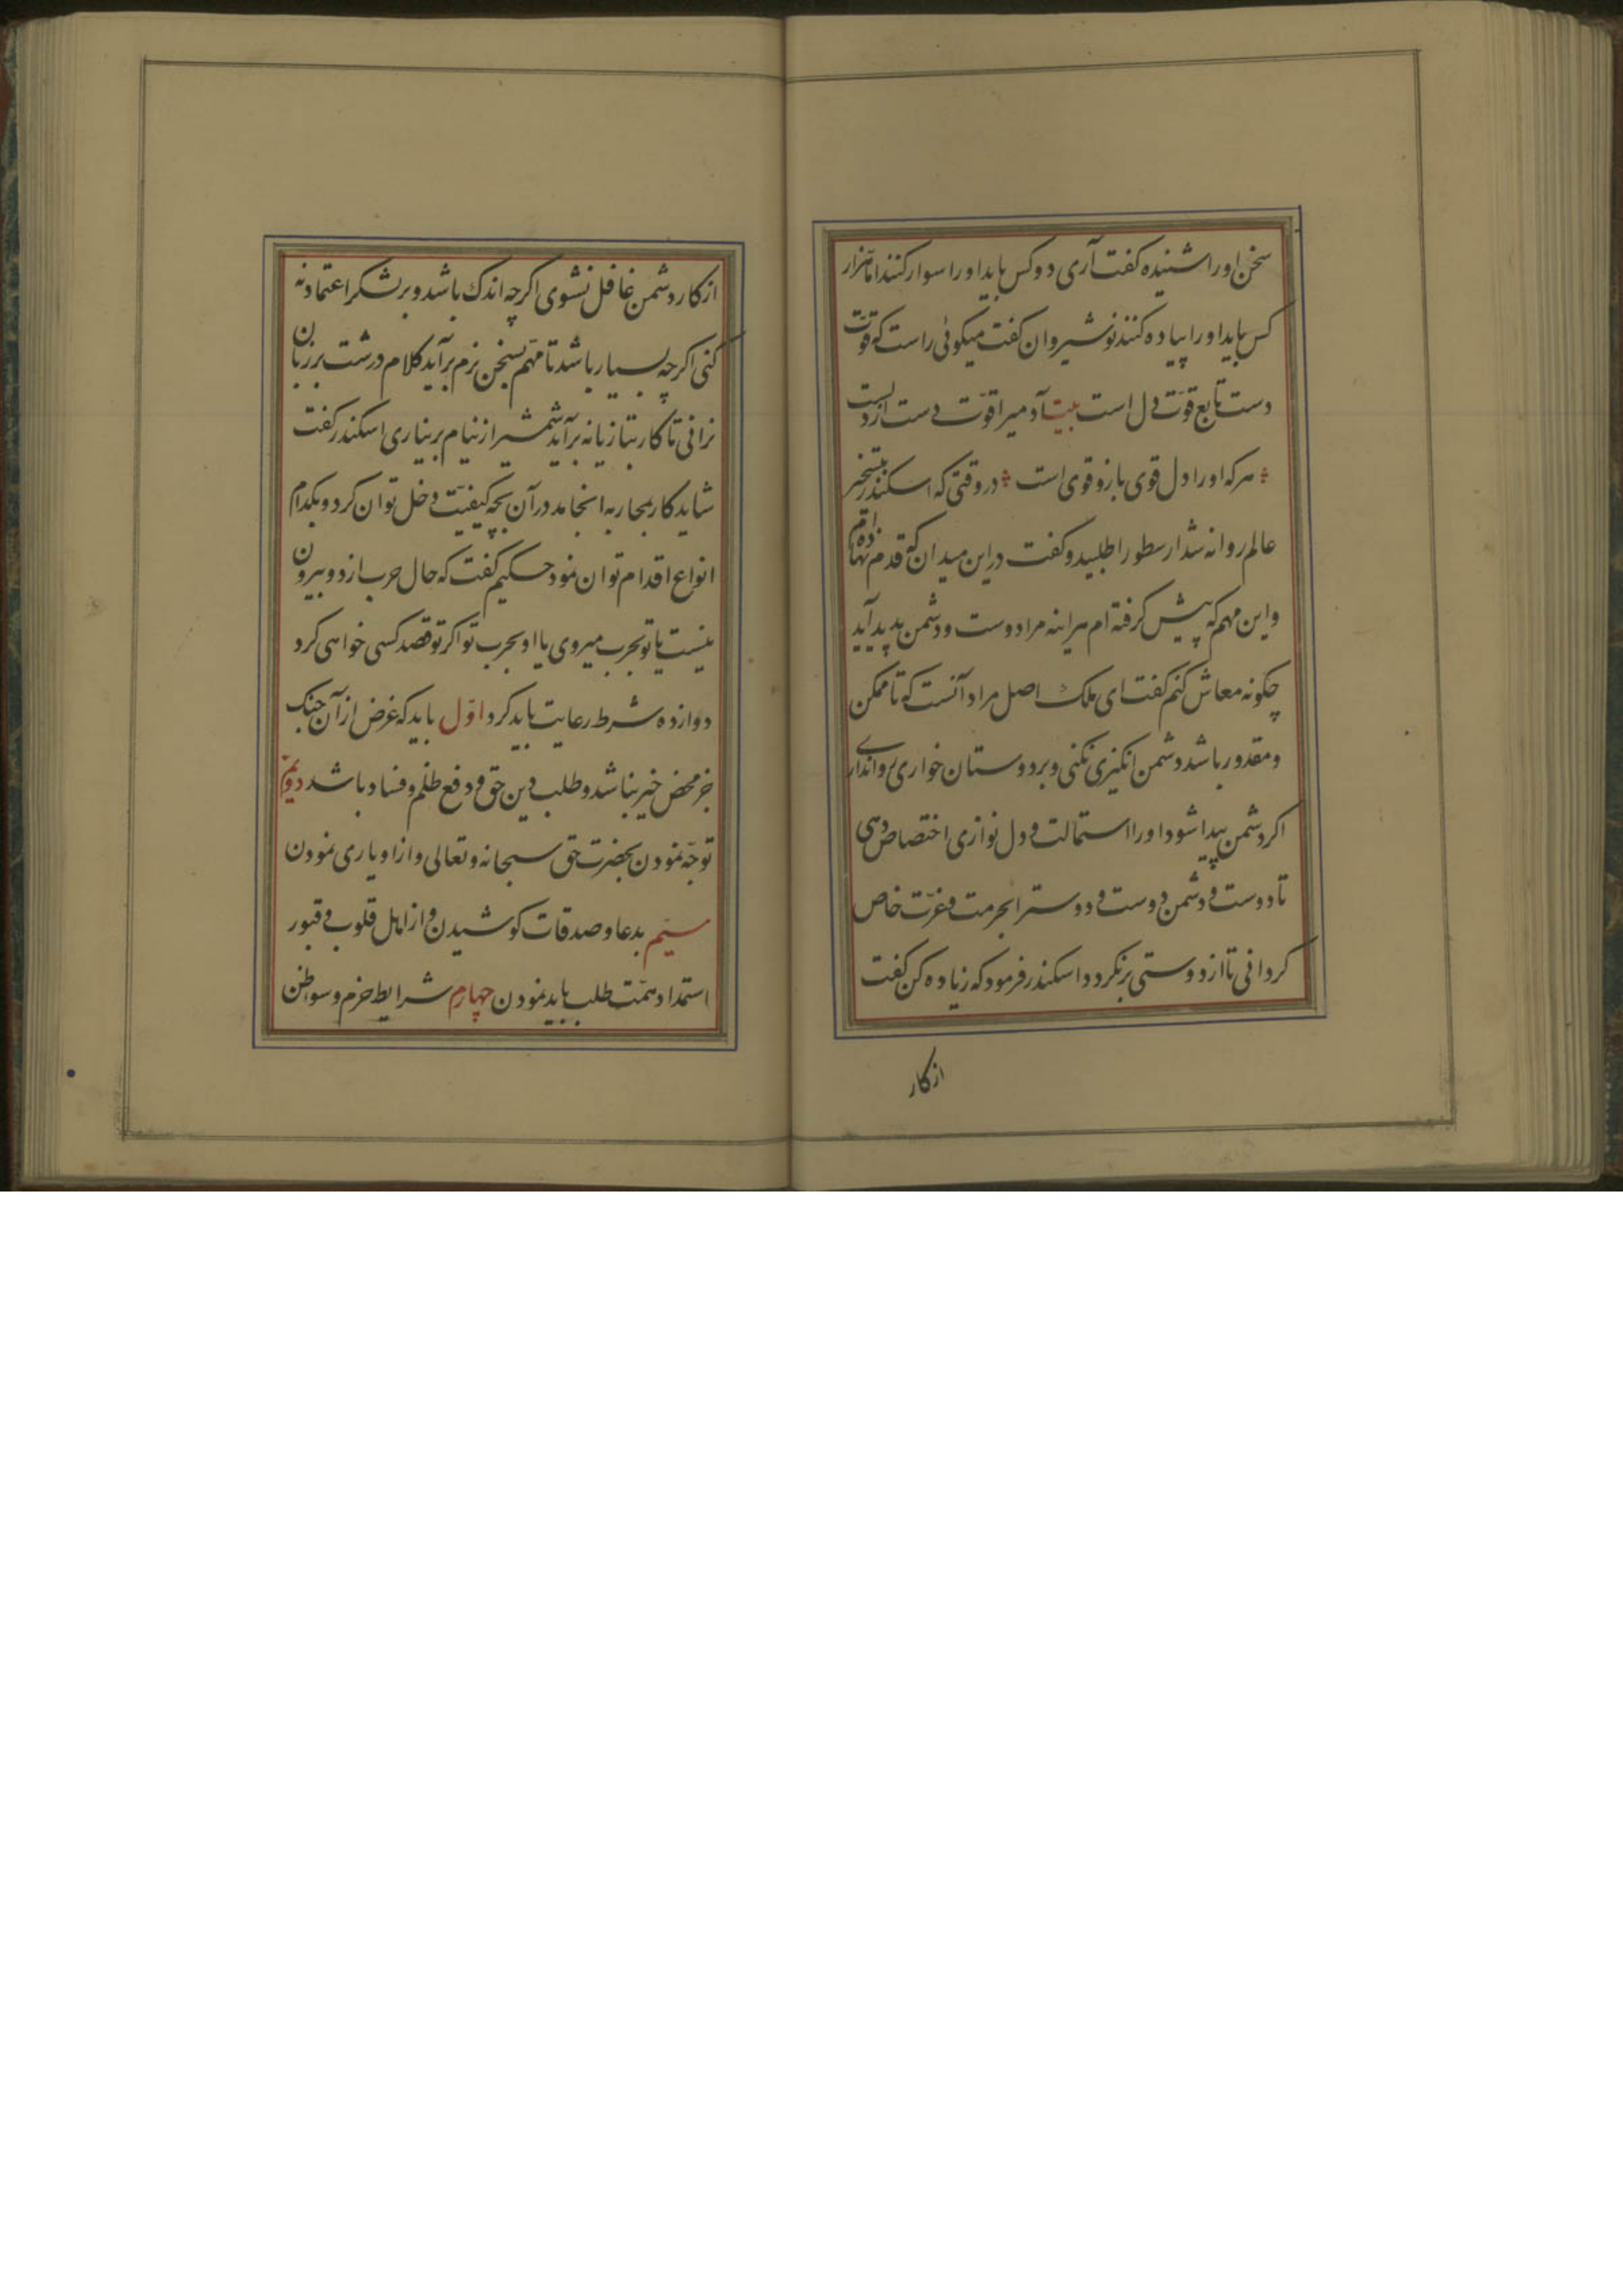 سخن او را شنیده گفت آری دو کس باید او را سوار کنند اما هزار
کس باید او را پیاده کنند نوشیروان گفت میگوئی راست که قوّت
دست تابع قوّت دل است بیت آدمیرا قوّت دست از دلست
هر که او را دل قوی بازو قوی است در وقتی که اسکندر بتسخیر
عالم روانه شد ارسطو را طلبید و گفت در این میدان که قدم نهاده‌ام
و این مهم که پیش گرفته ام هر اینه مرا دوست و دشمن پدید آید
چگونه معاش کنم گفت ای ملک اصل مراد آنست که تا ممکن
و مقدور باشد دشمن انگیزی نکنی و بر دوستان خواری روا نداری
اگر دشمن پیدا شود او را استمالت و دل نوازی اختصاص دهی
تا دوست و دشمن دوست و دوسترا بحرمت و عزّت خاص
گردانی تا از دوستی برنگردد اسکندر فرمود که زیاده کن گفت
از کار
از کار دشمن غافل نشوی اگرچه اندک باشد و بر لشکر اعتماد نه
کنی اگرچه بسیار باشد تا مهّم بسخن نرم برآید کلام درشت بر زبان
نرانی تا کار بتازیانه برآید شمشیر از نیام بر نیاری اسکندر گفت
شاید کار بمحاربه انجامد در آن بچه کیفیّت دخل توان کرد و بکدام
انواع اقدام توان نمود حکیم گفت که حال حرب از دو بیرون
نیست یا تو بحرب میروی یا او بحرب تو اگر تو قصد کسی خواهی کرد
دوازده شرط رعایت باید کرد اوّل باید که غرض از آن جنگ
جز محض خیر نباشد و طلب دین حق و دفع ظلم و فساد باشد دویم
توجّه نمودن بحضرت حق سبحانه و تعالی و از او یاری نمودن
سیّم بدعا و صدقات کوشیدن و از اهل قلوب و قبور
استمداد همّت طلب باید نمودن چهارم شرایط حزم و سوء ظن